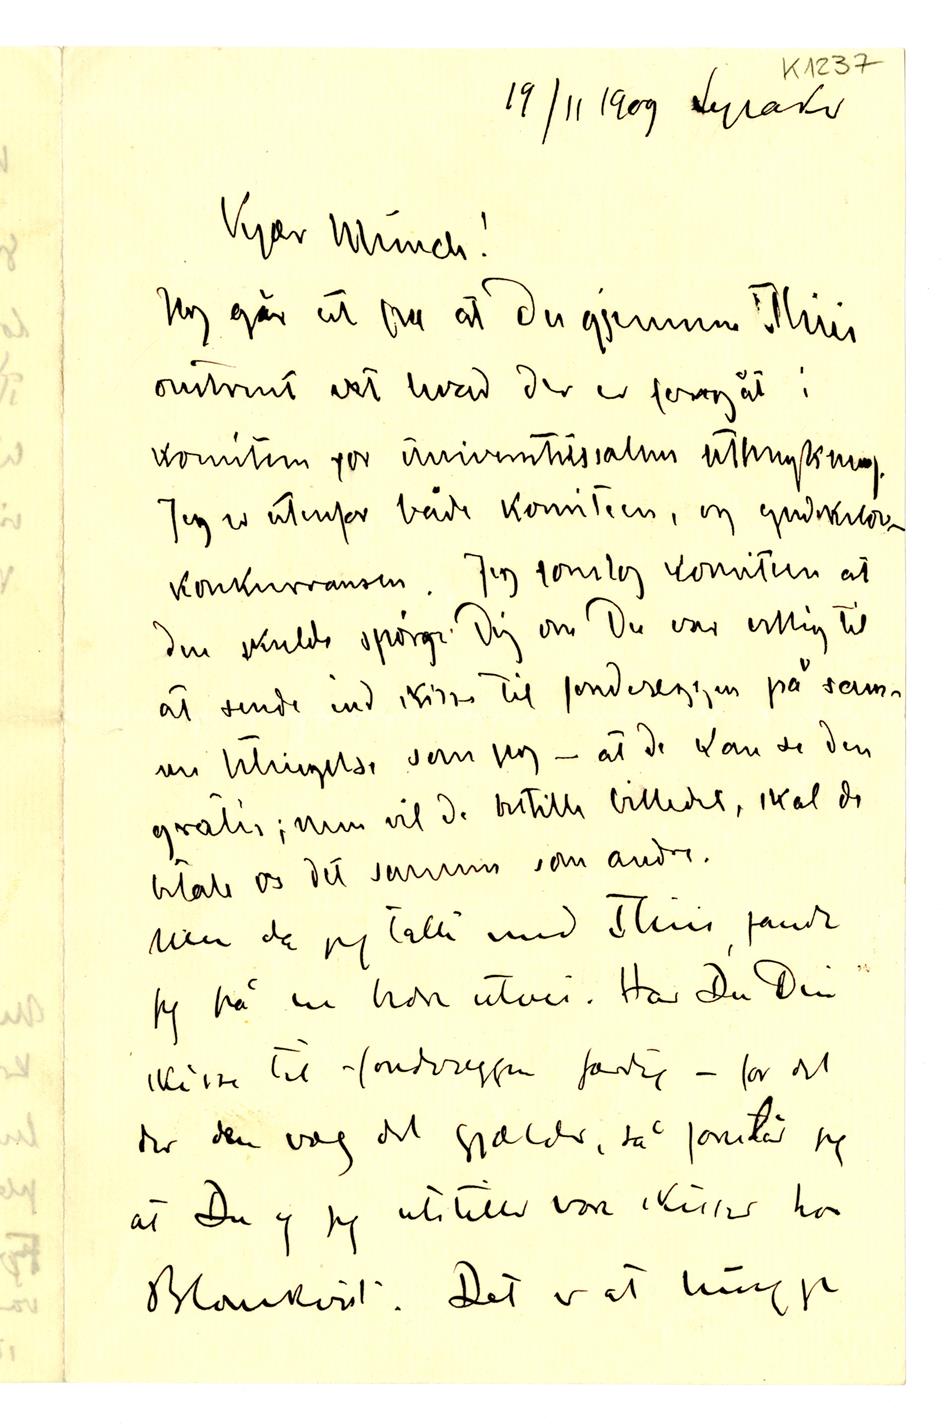 K1237
19/11 1909 Lysaker
Kjære Munch!
Jeg går ut fra at Du gjennem Thiis
omtrent vet hvad der er foregåt i
komiteen for Universitetssalens utsmykning.
Jeg er utenfor både komiteen, og
konkurransen. Jeg foreslog komiteen at
den skulde spørge Dig om Du var villig til
at sende ind skisse til fondvæggen på sam-
me betingelse som jeg – at de kan se den
gratis; men vil de bestille billedet, skal de
betale os det samme som andre.
Men da jeg talte med Thiis, fandt
jeg på en bedre utvei. Har Du Din
skisse til fondvæggen færdig – for det
der den væg det gjælder, så foreslår jeg
at Du og jeg utstiller vore skisser hos
Blomkvist. Det er at